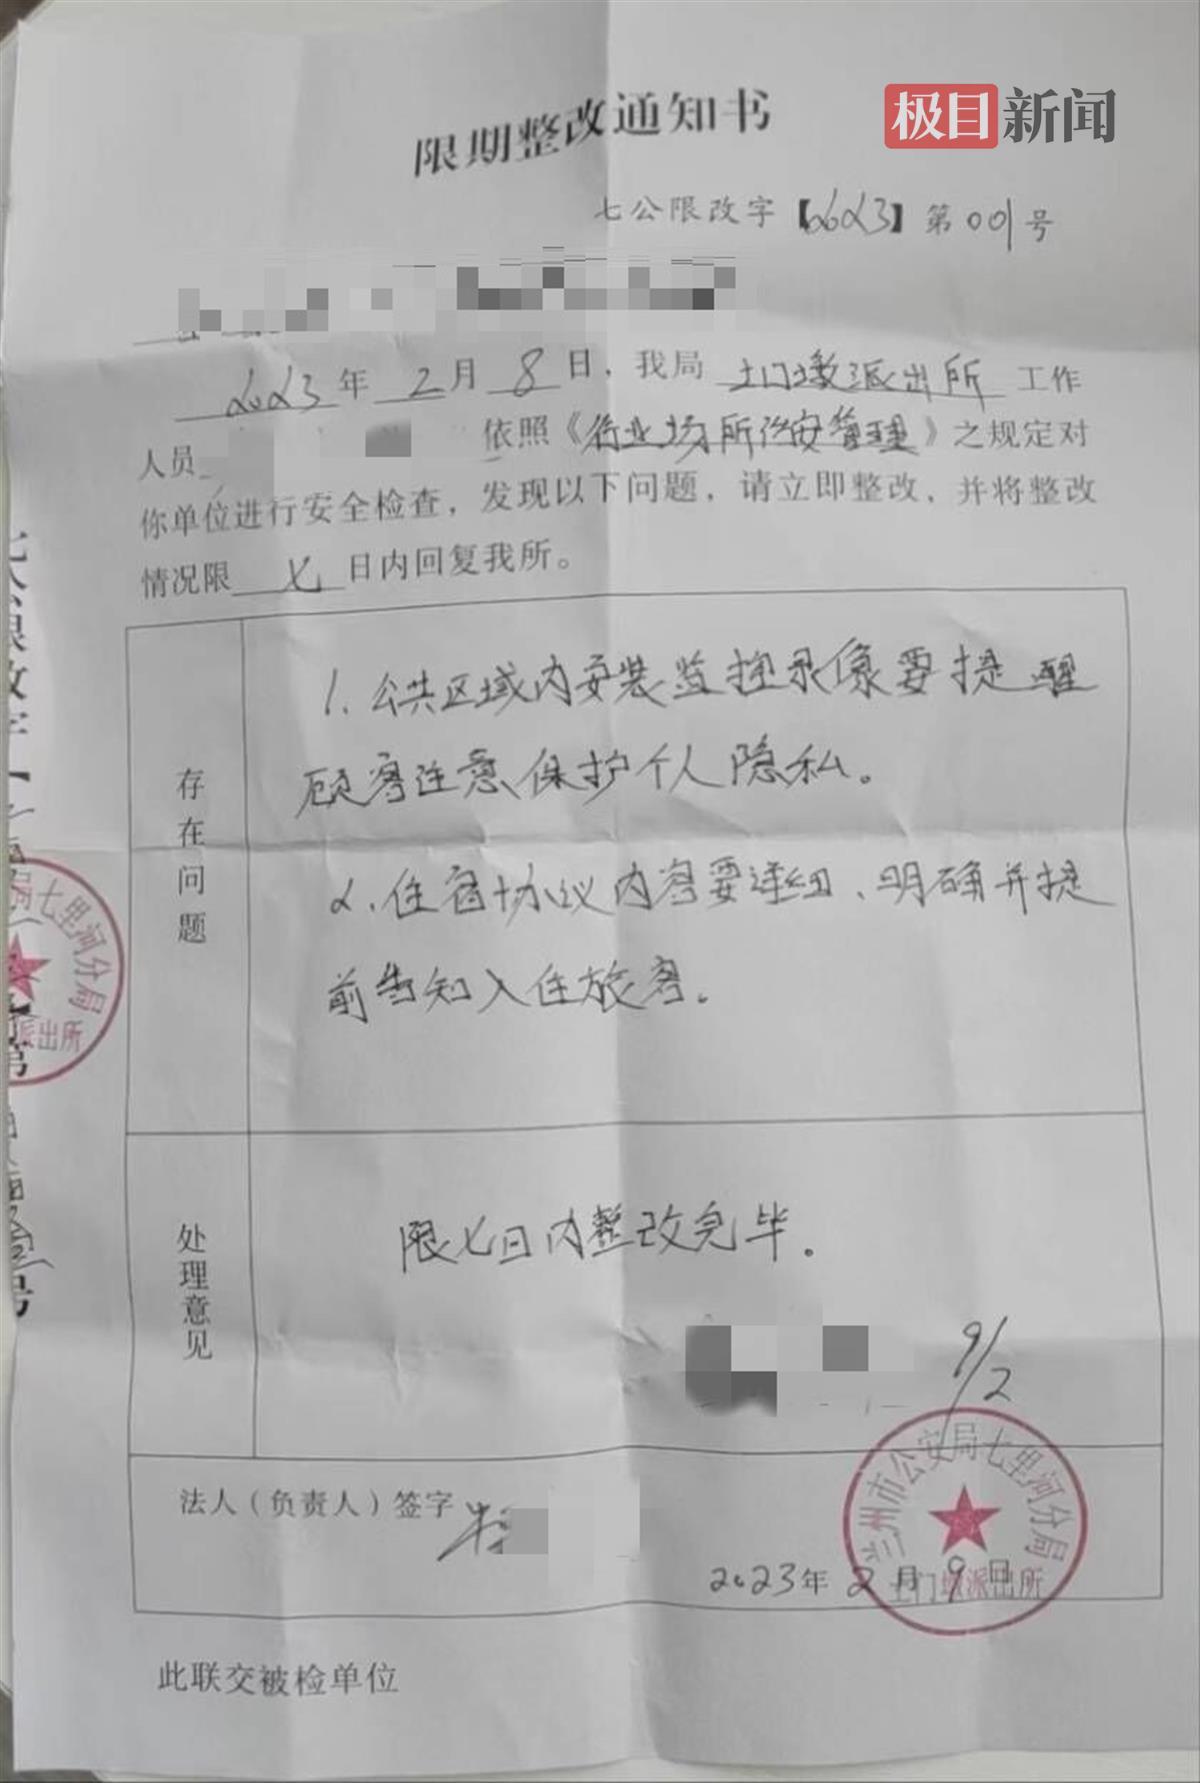 极目新闻
限期整改通知书
七公限改字【2023】第001号
2023年2月8日，我局土门墩派出所工作
人员 依照《行业场所治安管理》之规定对
你单位进行安全检查，发现以下问题，请立即整改，并将整改
情况限七日内回复我所。
存在问题
1.公共区域内安装监控录像要提醒
顾客注意保护个人隐私。
2.住宿协议内容要详细、明确并提
前告知入住旅客。
处理意见
限七日内整改完毕。
9/2
法人（负责人）签字
2023年2月9日
兰州市公安局七里河分局
土门墩派出所
此联交被检单位
七里河分局
派出所